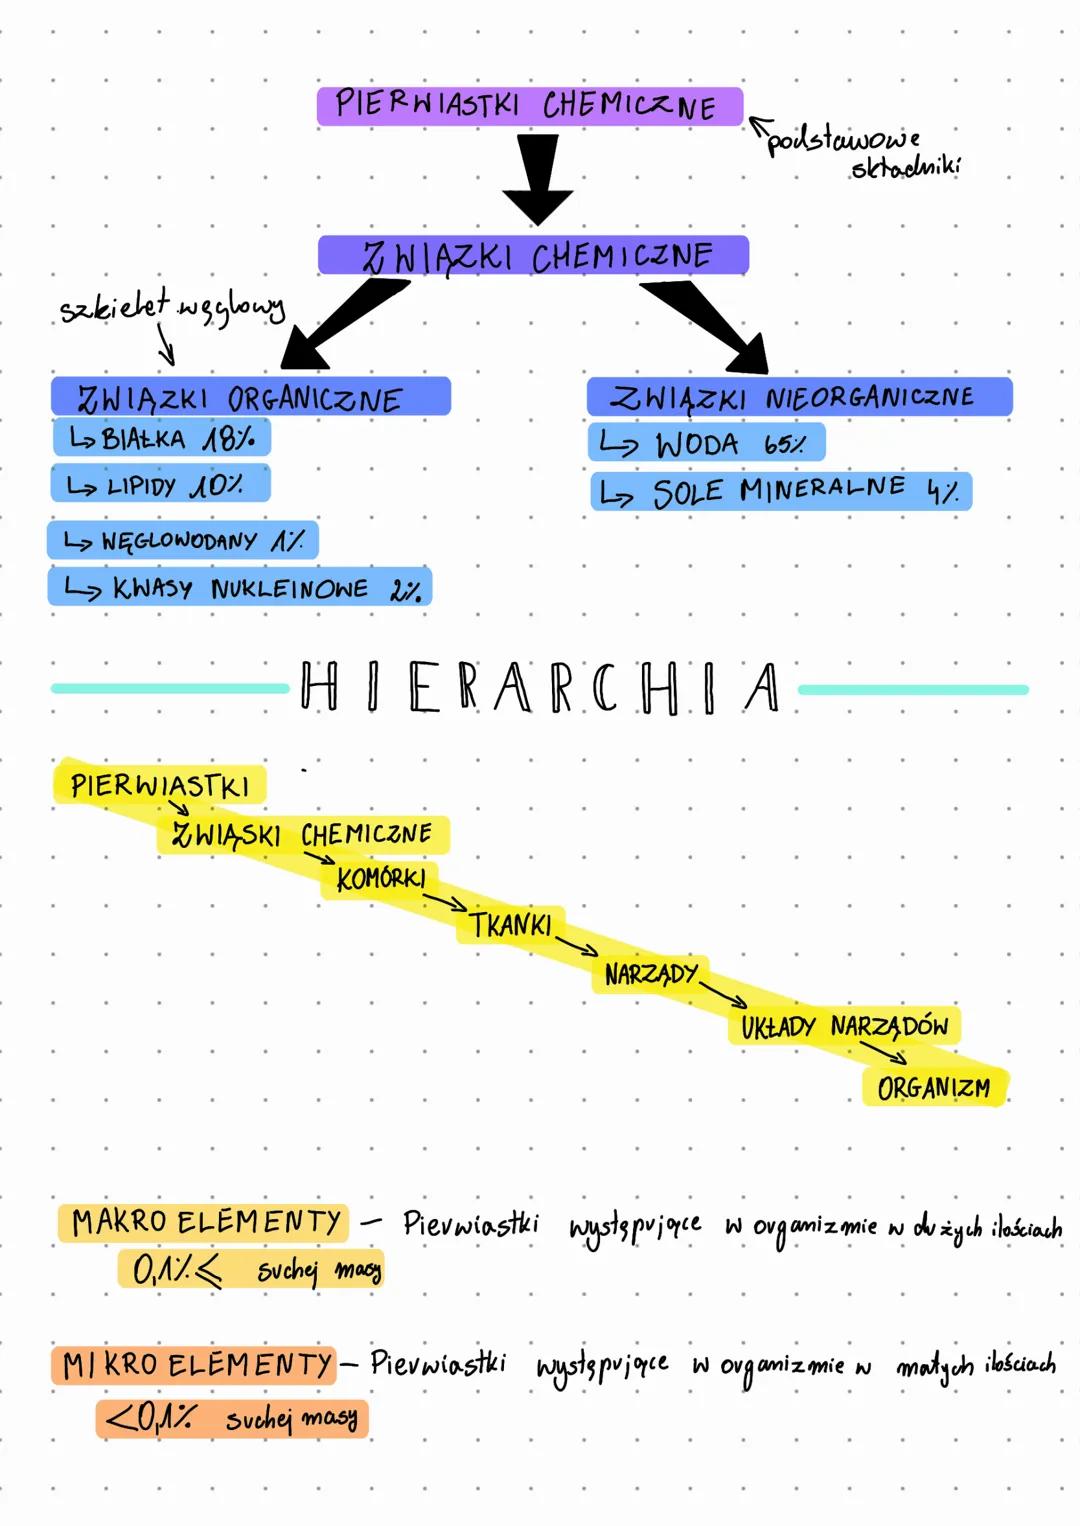 PIERWIASTKI CHEMICZNE
podstawowe
składniki
ZWIĄZKI CHEMICZNE
szkielet węglowy
ZWIĄZKI ORGANICZNE
↳ BIAŁKA 18%
↳ LIPIDY 10%
↳ WĘGLOWODANY 1%
↳ KWASY NUKLEINOWE 2%
ZWIĄZKI NIEORGANICZNE
↳ WODA 65%
↳ SOLE MINERALNE 4%
HIERARCHIA
PIERWIASTKI
ZWIĄSKI CHEMICZNE
KOMÓRKI
TKANKI
NARZĄDY
UKŁADY NARZĄDÓW
ORGANIZM
MAKRO ELEMENTY – Pierwiastki występujące w organizmie w dużych ilościach
0,1% ≤ suchej masy
MIKRO ELEMENTY – Pierwiastki występujące w organizmie w małych ilościach
<0,1% suchej masy